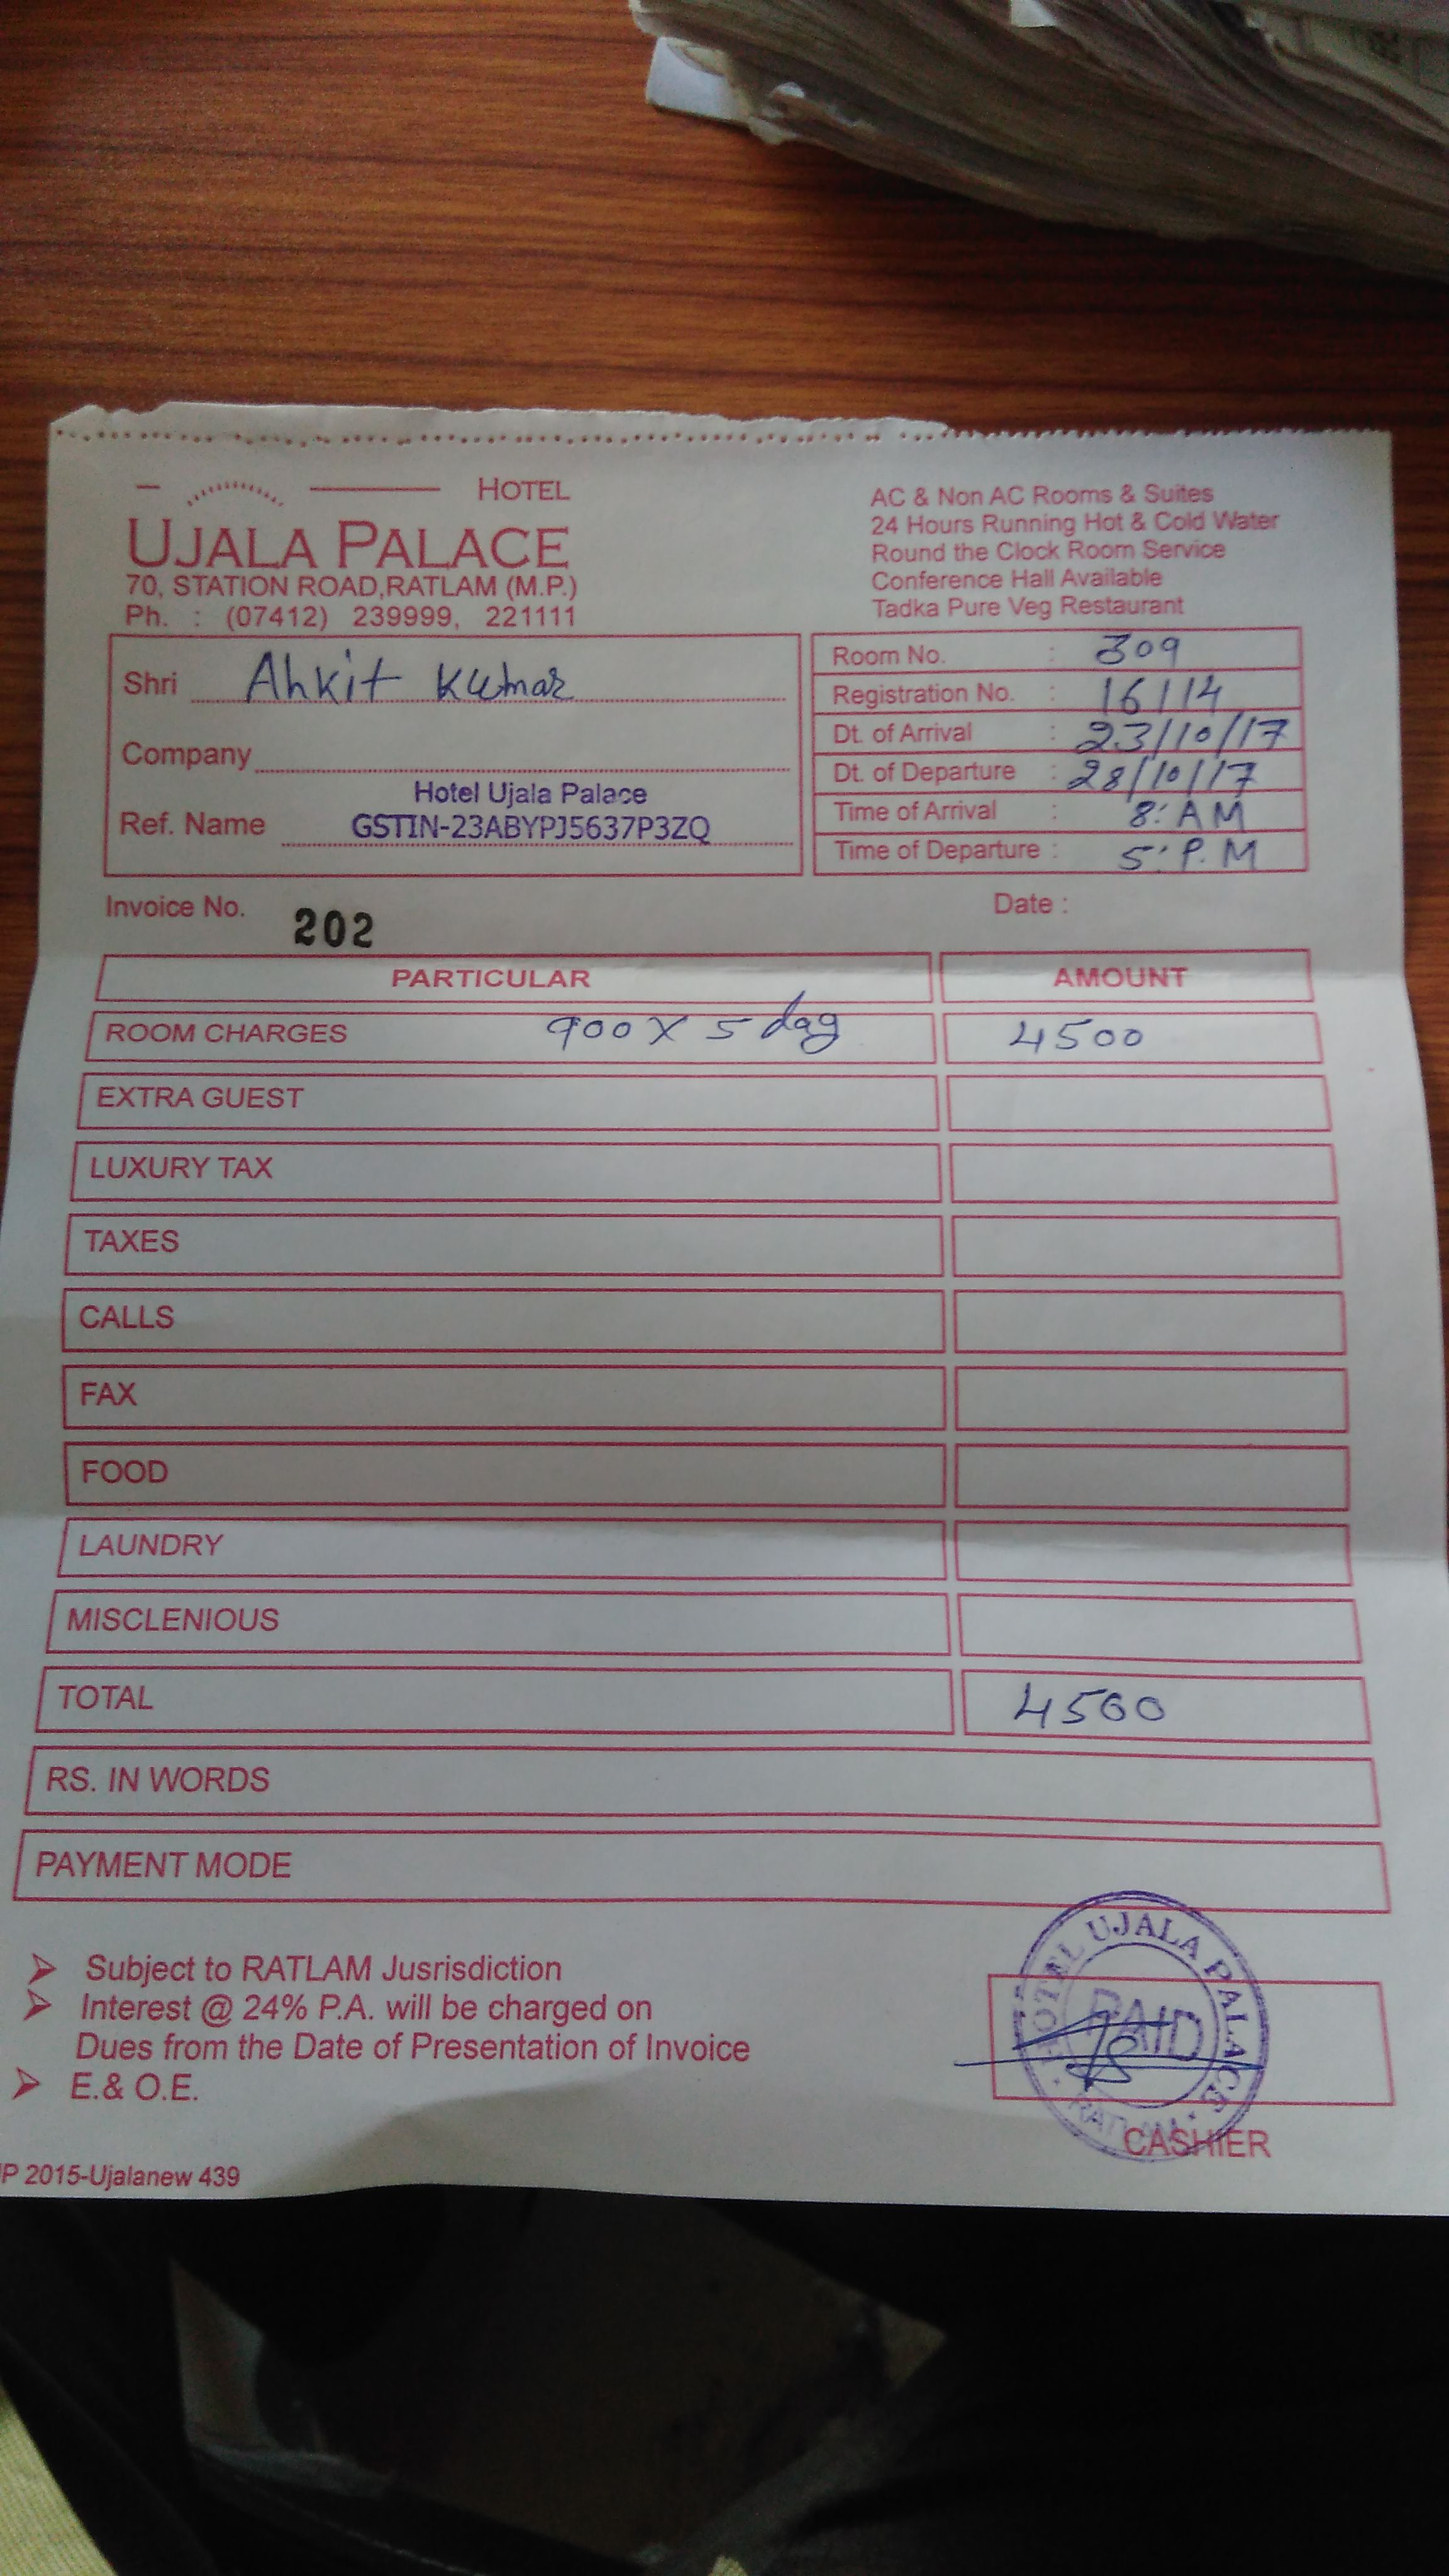 HOTEL
UJALA PALACE
70, STATION ROAD,RATLAM (M.P.)
Ph. : (07412) 239999, 221111
AC & Non AC Rooms & Suites
24 Hours Running Hot & Cold Water
Round the Clock Room Service
Conference Hall Available
Tadka Pure Veg Restaurant
Shri Ahkit Kumar
Company
Hotel Ujala Palace
Ref. Name GSTIN-23ABYPJ5637P3ZQ
Room No. : 309
Registration No. : 16114
Dt. of Arrival : 23/10/17
Dt. of Departure : 28/10/17
Time of Arrival : 8: AM
Time of Departure : 5: P.M
Invoice No. 202
Date :
PARTICULAR AMOUNT
ROOM CHARGES 900 X 5 day 4500
EXTRA GUEST
LUXURY TAX
TAXES
CALLS
FAX
FOOD
LAUNDRY
MISCLENIOUS
TOTAL 4500
RS. IN WORDS
PAYMENT MODE
Subject to RATLAM Jusrisdiction
Interest @ 24% P.A. will be charged on
Dues from the Date of Presentation of Invoice
E.& O.E.
HOTEL UJALA PALACE
PAID
RATLAM
CASHIER
P 2015-Ujalanew 439